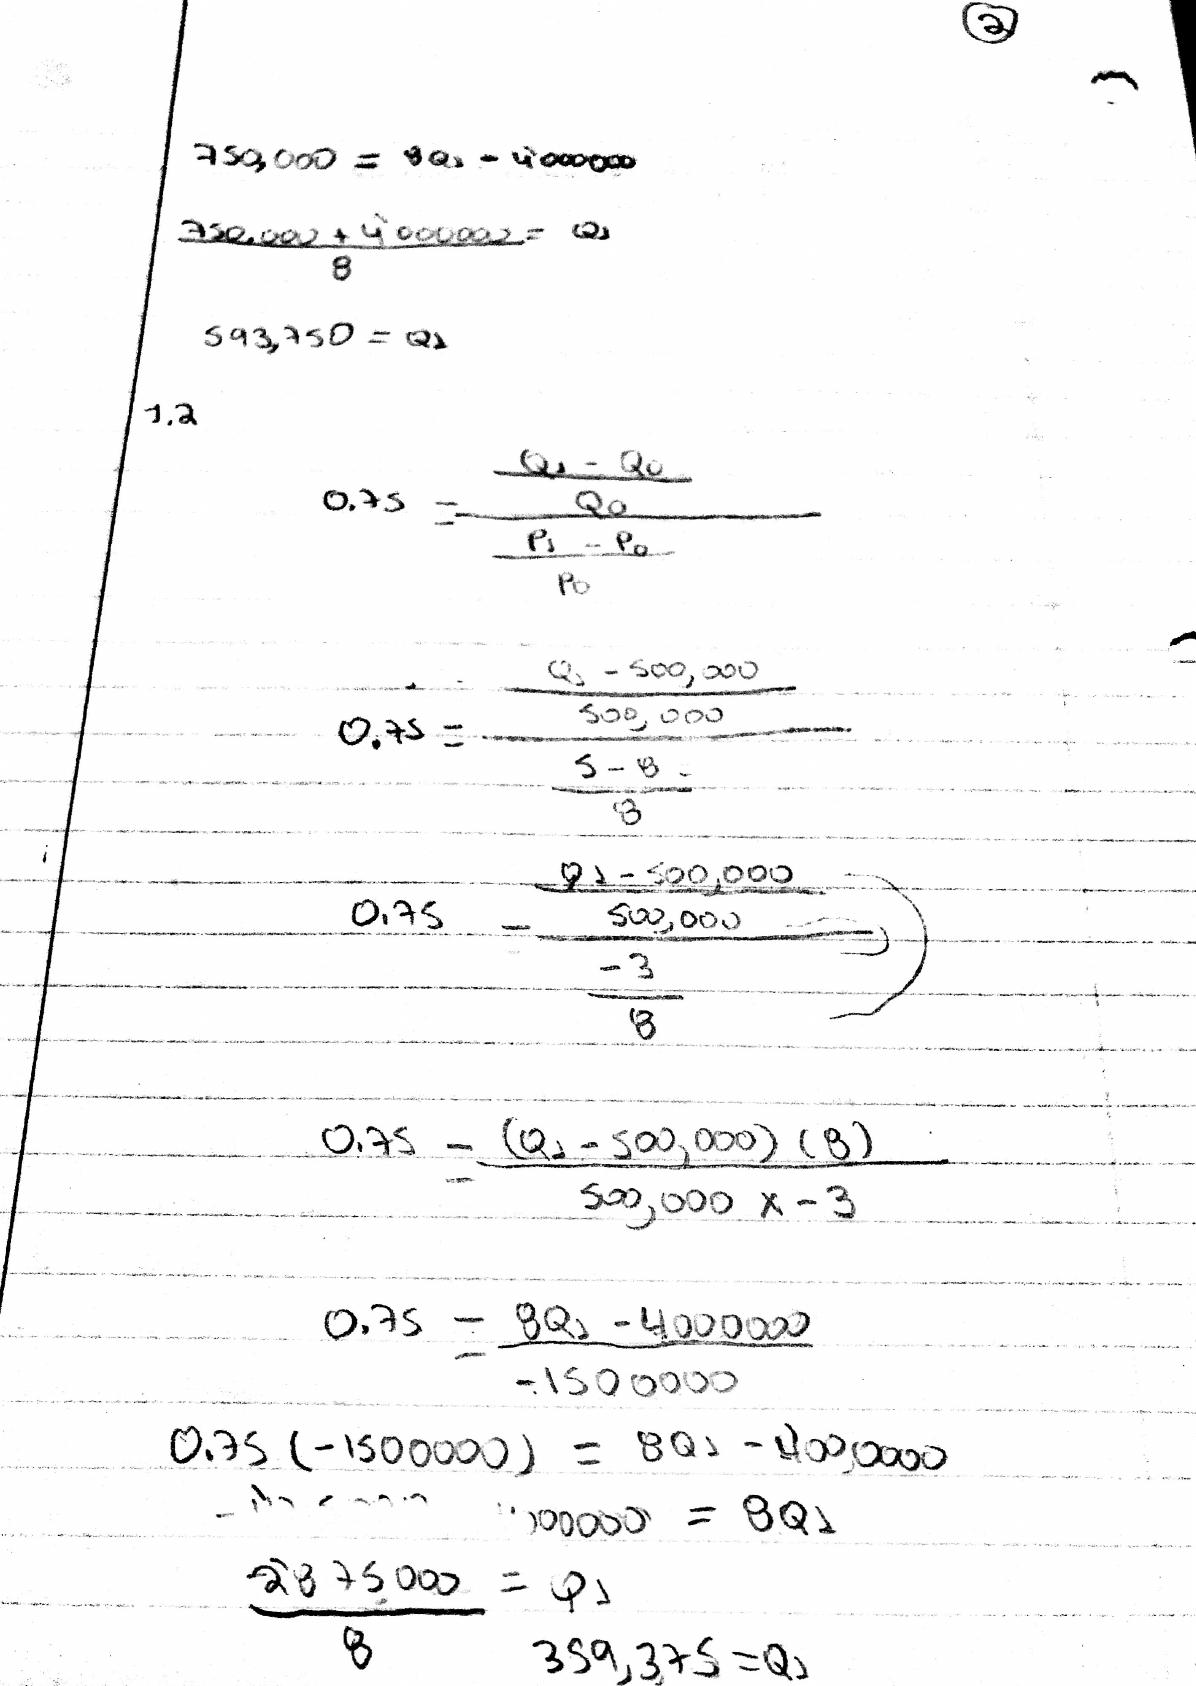 2
750,000 = 8Q1 - 4000000
750,000 + 4000000 = Q1
8
593,750 = Q1
1.2
Q1 - Q0
0.75 = Q0
P1 - P0
P0
Q1 - 500,000
0.75 = 500,000
5 - 8
8
Q1 - 500,000
0.75 - 500,000
-3
8
0.75 = (Q1 - 500,000) (8)
500,000 x -3
0.75 = 8Q1 - 4000000
-1500000
0.75 (-1500000) = 8Q1 - 400,0000
= 8Q1
2875000 = Q1
8
359,375 = Q1